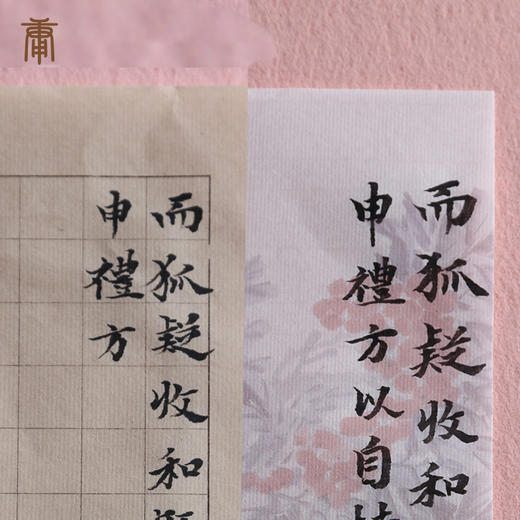 而狐疑收和
申禮方以自
而狐疑收和
申禮方